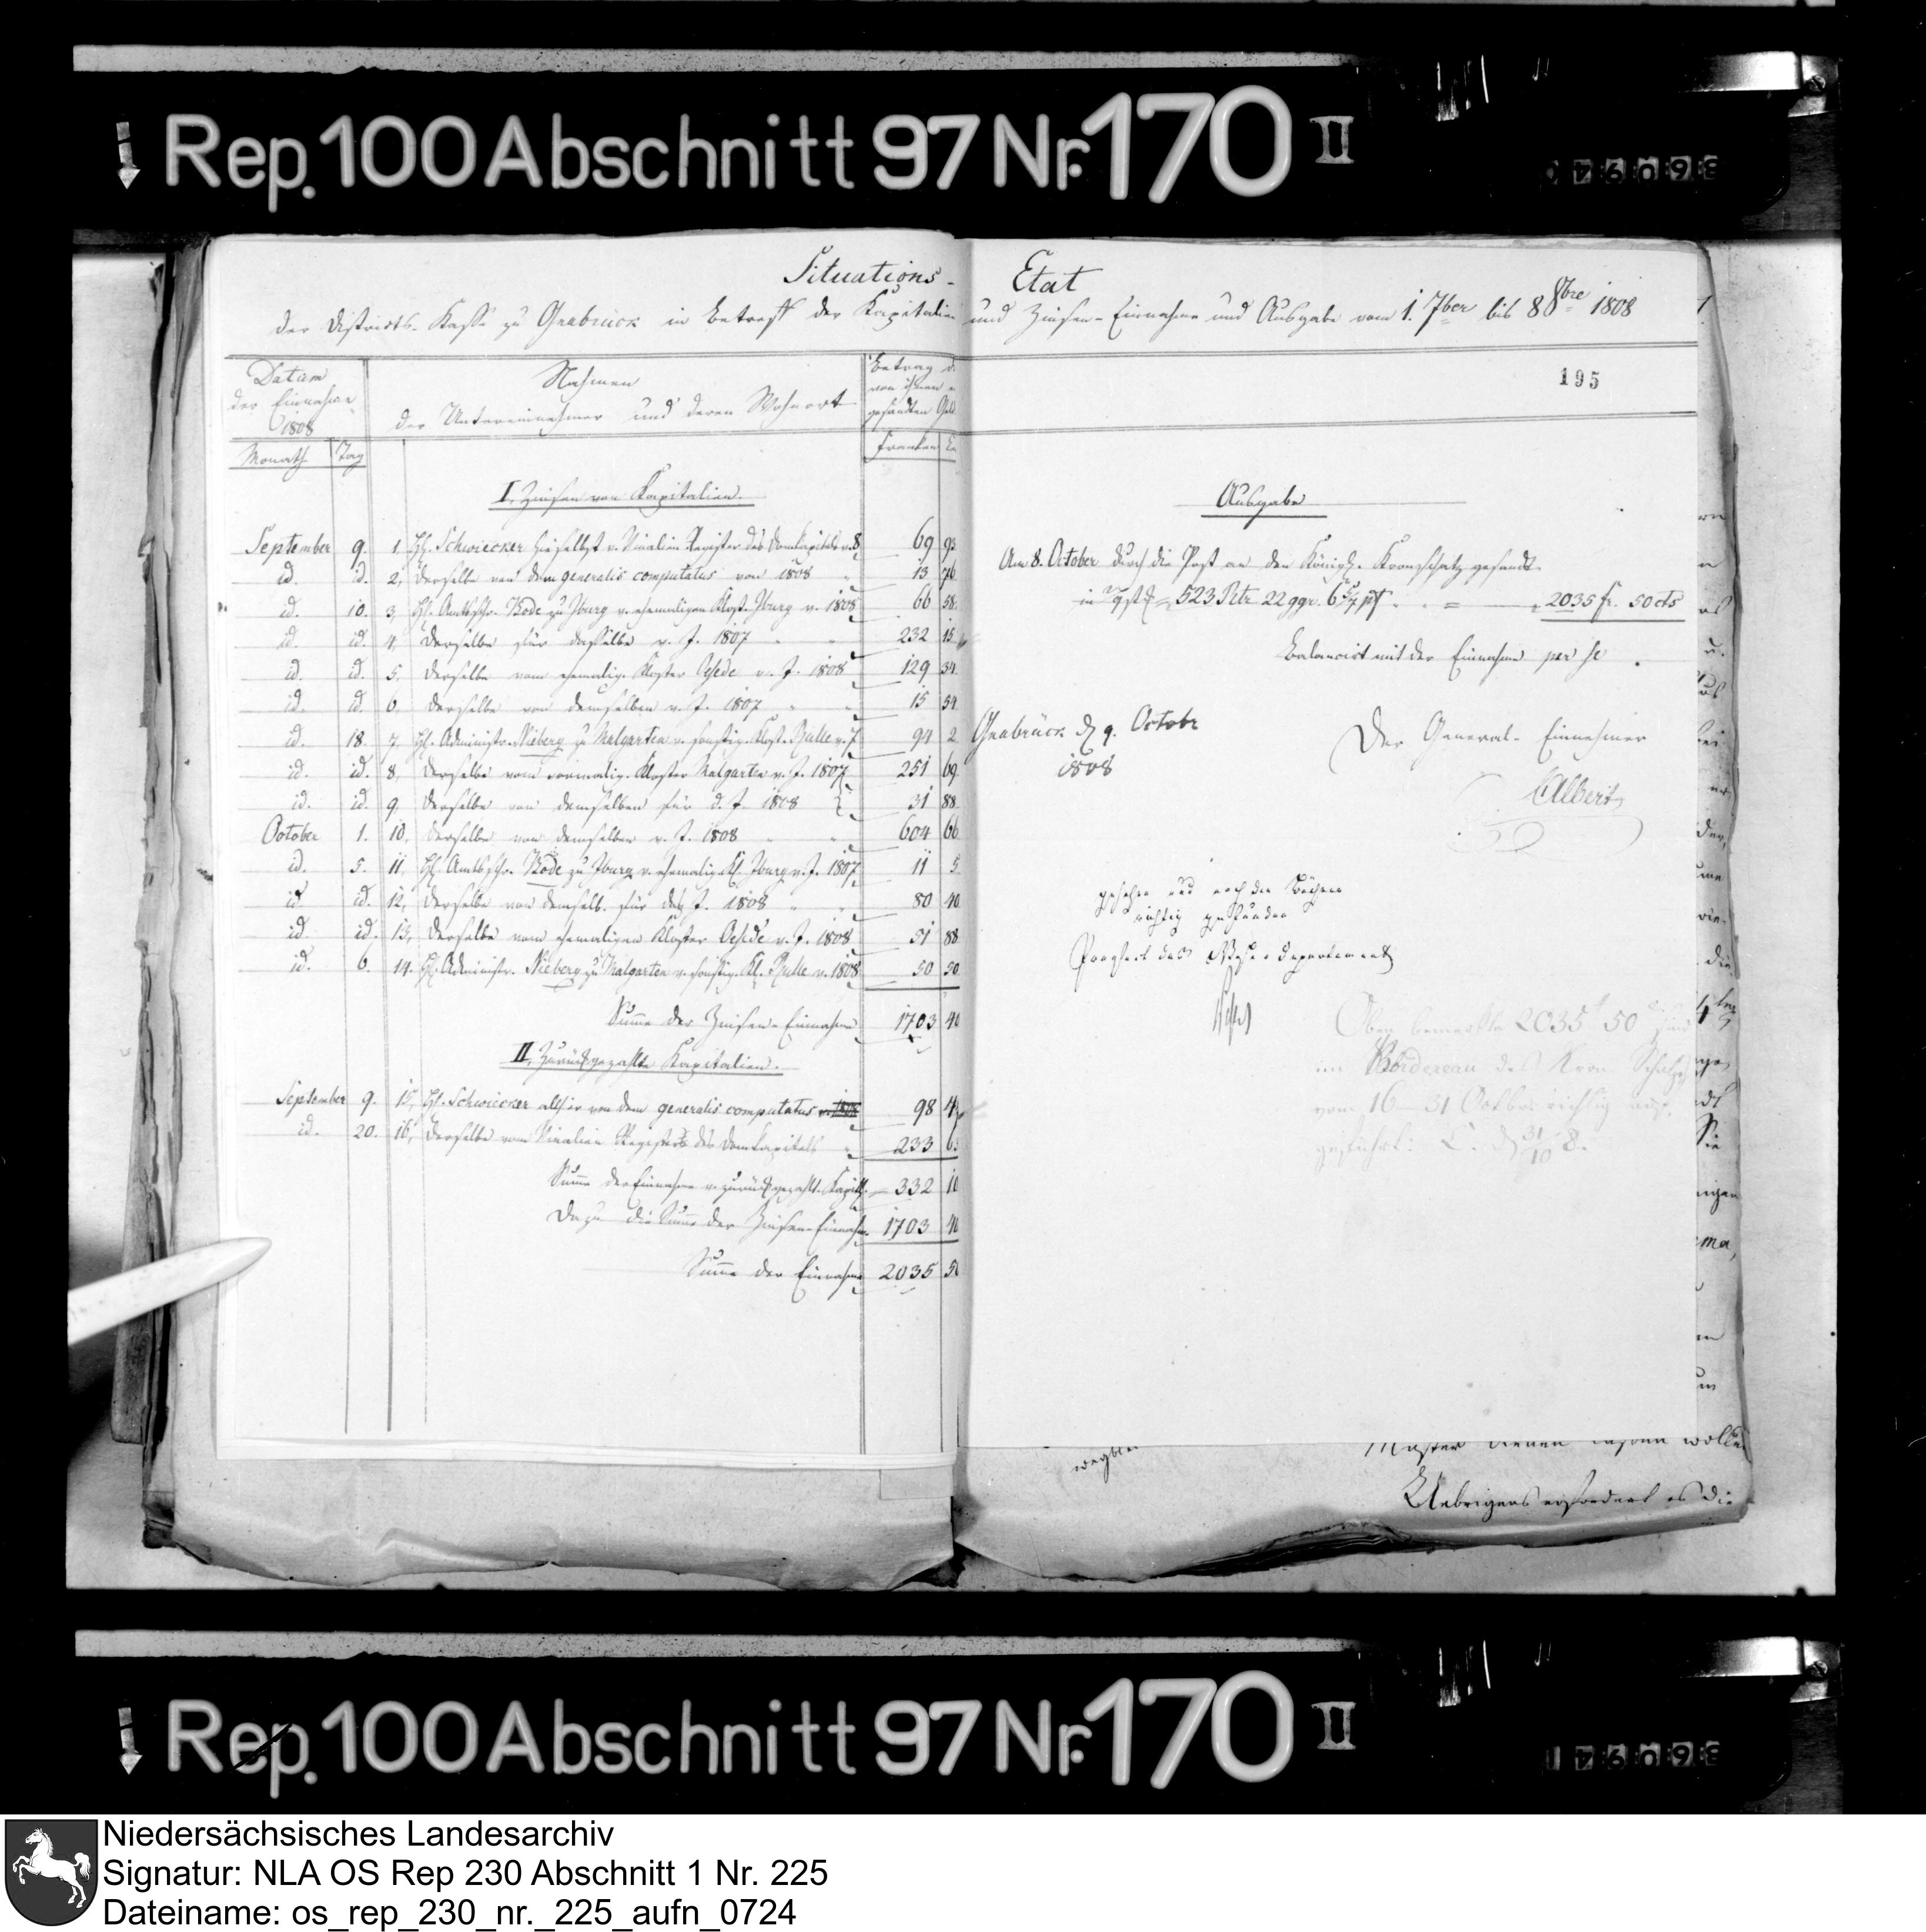 Rep. 100 Abschnitt 97 Nr. 170 II
Situations- Etat
der Districts-Kasse zu Osnabrück in Betreff der Kapitalien und Zinsen-Einnahme und Ausgabe vom 1. 7ber bis 8 8bre 1808
195
Datum
der Einnahme
1808
Nahmen
der Untereinnehmer und deren Wohnort
Betrag
von ihnen
gesandten Geld
Monath Tag
Franken
I. Zinsen von Kapitalien.
September 9. 1, H. Schwiecker hieselbst v. Register des Domkapitels v. 8 69 93
id. id. 2, Derselbe von dem generalis computatus von 1808 13 76
id. 10. 3, H. Amtsschr. Bode zu Iburg v. ehemaligen Klost. Iburg v. 1808 66 58
id. id. 4, Derselbe für dasselbe v. J. 1807 232 15
id. id. 5, Derselbe vom ehemalig. Kloster Oesede v. J. 1808 129 34
id. id. 6, Derselbe von demselben v. J. 1807 15 54
id. 18. 7, H. Administr. Nieberg zu Malgarten v. sonstig. Klost. Rulle v. 7 94 2
id. id. 8, Derselbe vom vormalig. Kloster Malgarten v. J. 1807 251 69
id. id. 9. Derselbe von demselben für d. J. 1808 31 88
October 1. 10, Derselbe von demselben v. J. 1808 604 66
id. 5. 11, H. Amtsschr. Bode zu Iburg v. ehemalig. Kl. Iburg v. J. 1807 11 5
id. id. 12, Derselbe von demselb. für das J. 1808 80 40
id. id. 13, Derselbe vom ehemaligen Kloster Oesede v. J. 1808 51 88
id. 6. 14. H. Administr. Nieberg zu Malgarten v. sonstig. Kl. Rulle v. 1808 50 50
Summe der Zinsen-Einnahme 1703 40
II. Zurückgezahlte Kapitalien.
September 9. 15, H. Schwiecker allhier von dem generalis computatus v. 1808 98 4
id. 20. 16, Derselbe vom Register des Domkapitels 233 6
Summe der Einnahme v. zurückgezahlt. Kapitl. 332 10
Dazu die Summe der Zinsen-Einnahme 1703 40
Summe der Einnahme 2035 50
Ausgabe
Am 8. October durch die Post an den Königl. Kronschatz gesandt
in 523 Rtr 22 ggr. 6 5/7 pf = 2035 fr. 50 cts
Balancirt mit der Einnahme per se.
Osnabrück d. 9. Octobr
1808
Der General-Einnehmer
Albert
gesehen und nach den Büchern
richtig gefunden
Oben bemerkte 2035 f 50 sind
im Bordereau des Kron Schatzes
vom 16-31 Octbr richtig auf-
geführt. 31/10 8.
Uebrigens erfordert es die
Rep. 100 Abschnitt 97 Nr. 170 II
Niedersächsisches Landesarchiv
Signatur: NLA OS Rep 230 Abschnitt 1 Nr. 225
Dateiname: os_rep_230_nr._225_aufn_0724